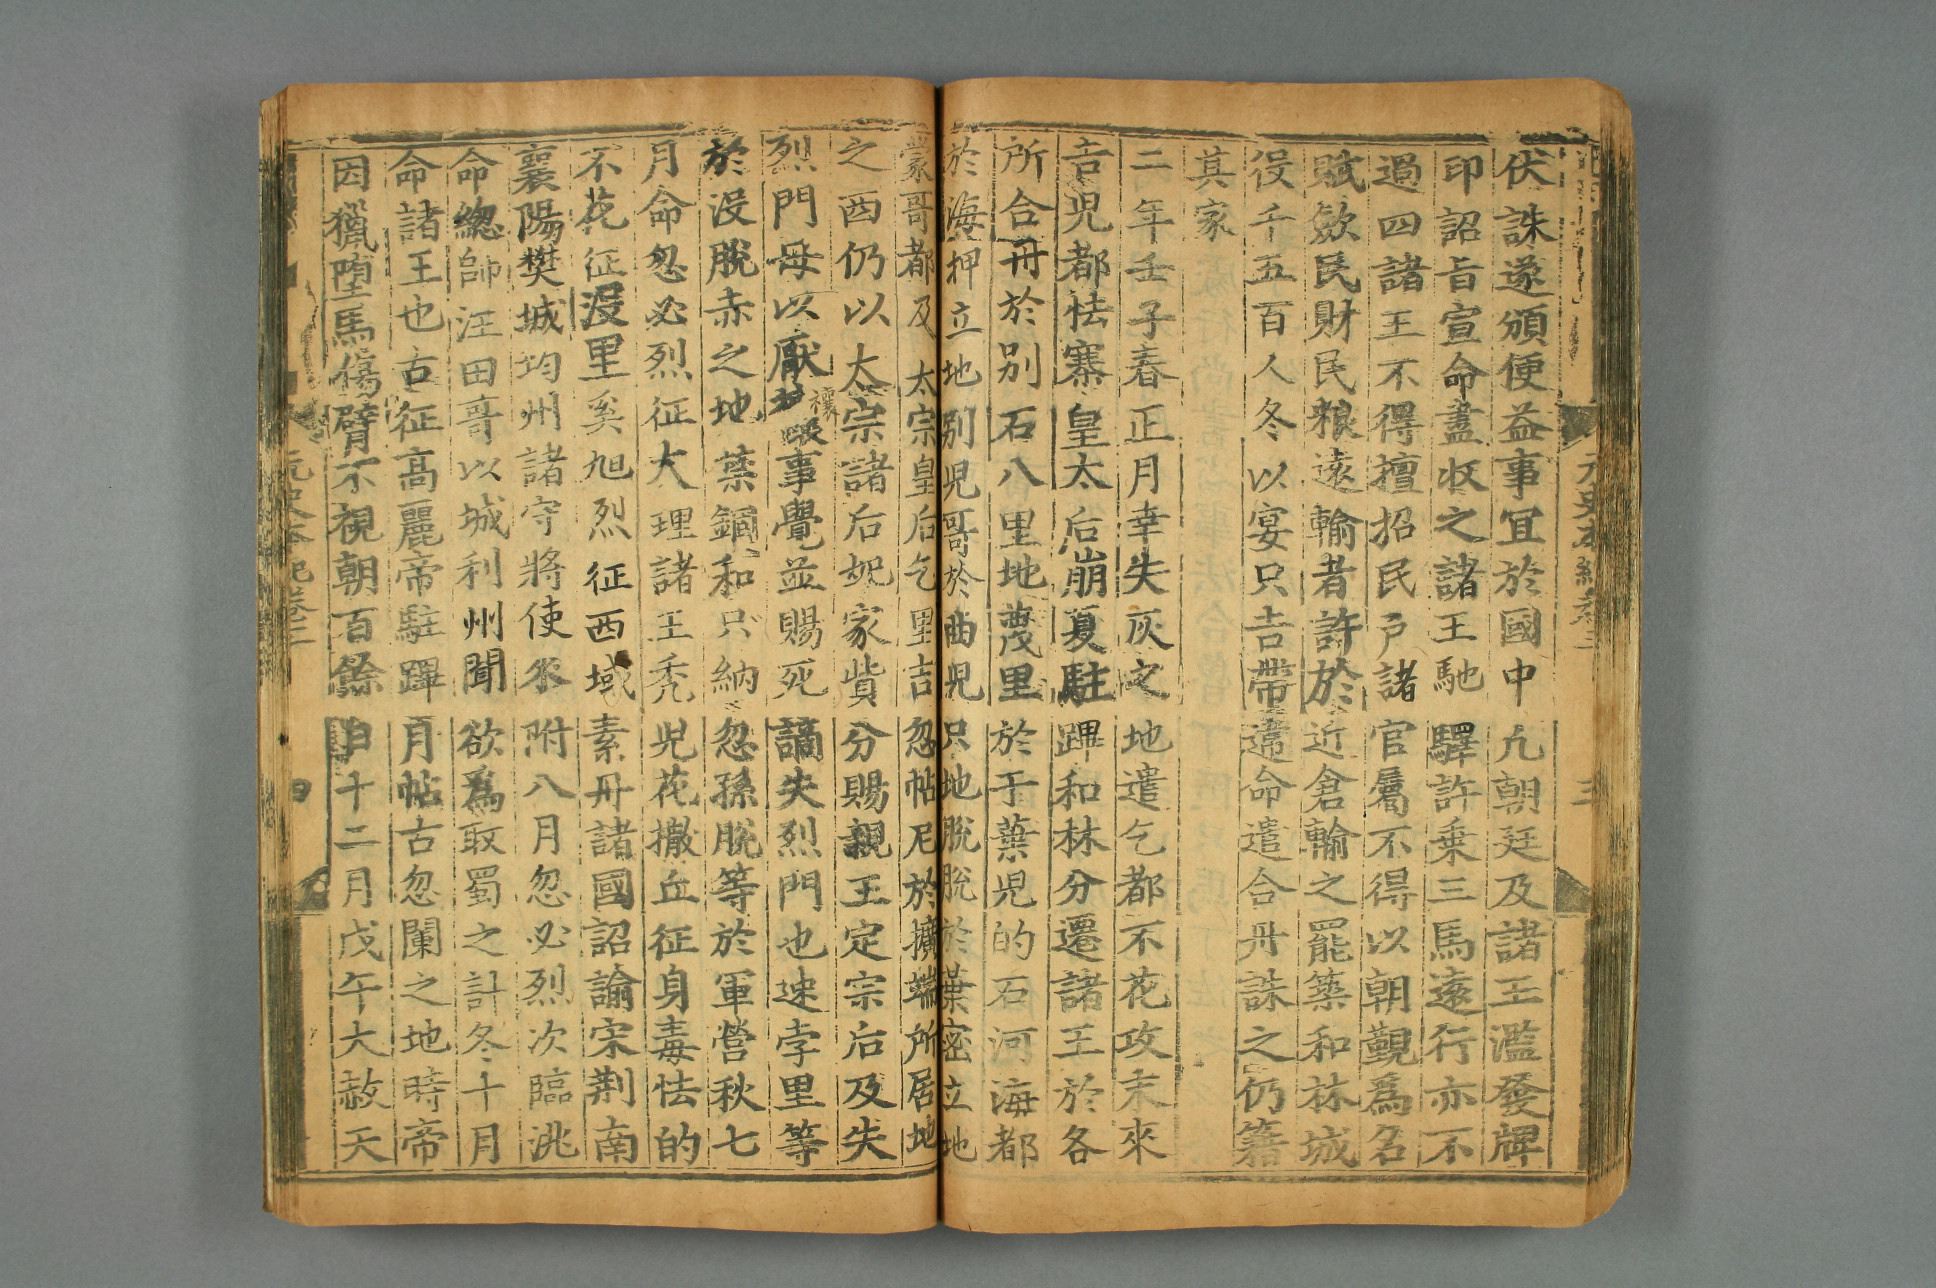 元史本紀卷三
三
伏誅遂頒便益事冝於國中凢朝廷及諸王濫發牌
印詔旨宣命盡收之諸王馳驛許乗三馬逺行亦不
過四諸王不得擅招民戸諸官屬不得以朝覲爲名
賦歛民財民粮逺輸者許於近倉輸之罷築和林城
役千五百人冬以宴只吉帶違命遣合丹誅之仍籍
其家
二年壬子春正月幸失灰之地遣乞都不花攻末來
吉児都怯寨皇太后崩夏駐蹕和林分遷諸王於各
所合丹於別石八里地蔑里於于葉児的石河海都
於海押立地別児哥於曲児只地脫脫於葉密立地
蒙哥都及太宗皇后乞里吉忽帖尼於擴端所居地
之西仍以太宗諸后妃家貲分賜親王定宗后及失
烈門母以厭禳事覺並賜死謫失烈門也速孛里等
於没脫赤之地葉錮和只納忽孫脫等於軍營秋七
月命忽必烈征大理諸王禿児花撒丘征身毒怯的
不花征没里奚旭烈征西域素丹諸國詔諭宋荆南
襄陽樊城均州諸守將使來附八月忽必烈次臨洮
命緫帥汪田哥以城利州聞欲爲取蜀之計冬十月
命諸王也古征高麗帝駐蹕月帖古忽闌之地時帝
因獵墮馬傷臂不視朝百餘日十二月戊午大赦天
元史本紀卷三
四